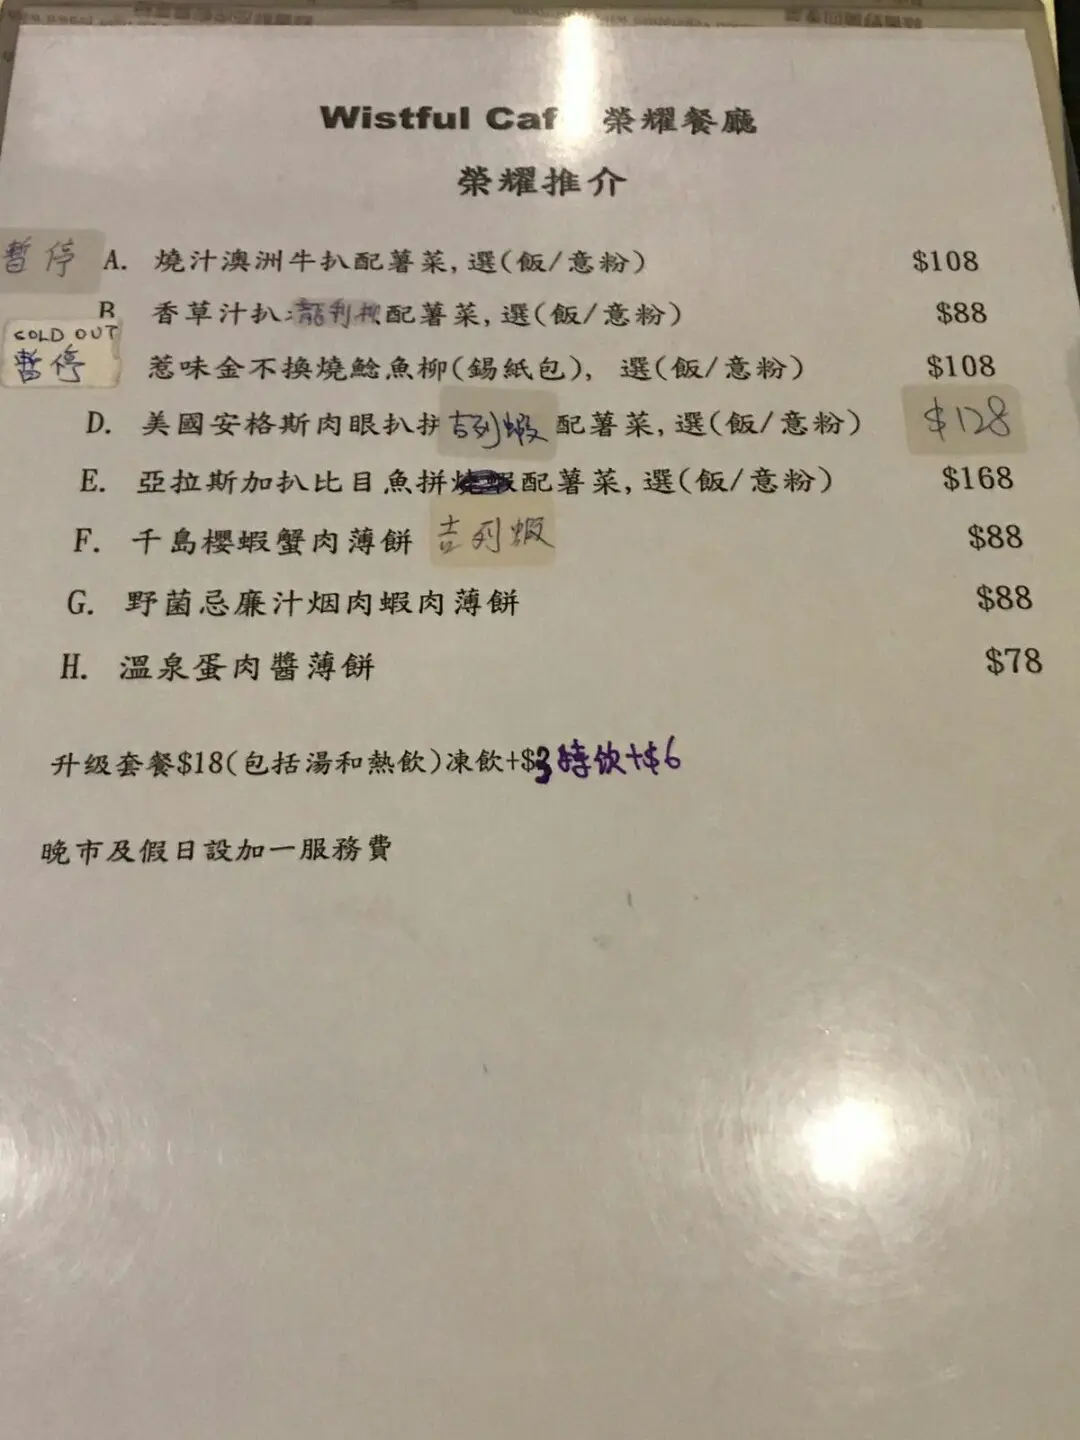 Wistful Caf 榮耀餐廳
榮耀推介
暫停 A. 燒汁澳洲牛扒配薯菜,選(飯/意粉) $108
B 香草汁扒龍利柳配薯菜,選(飯/意粉) $88
SOLD OUT
暫停 惹味金不換燒鯰魚柳(錫紙包), 選(飯/意粉) $108
D. 美國安格斯肉眼扒拼吉列蝦配薯菜,選(飯/意粉) $128
E. 亞拉斯加扒比目魚拼燒蝦配薯菜,選(飯/意粉) $168
吉列蝦
F. 千島櫻蝦蟹肉薄餅 $88
G. 野菌忌廉汁烟肉蝦肉薄餅 $88
H. 溫泉蛋肉醬薄餅 $78
升级套餐$18(包括湯和熱飲)凍飲+$3 特飲+$6
晚市及假日設加一服務費